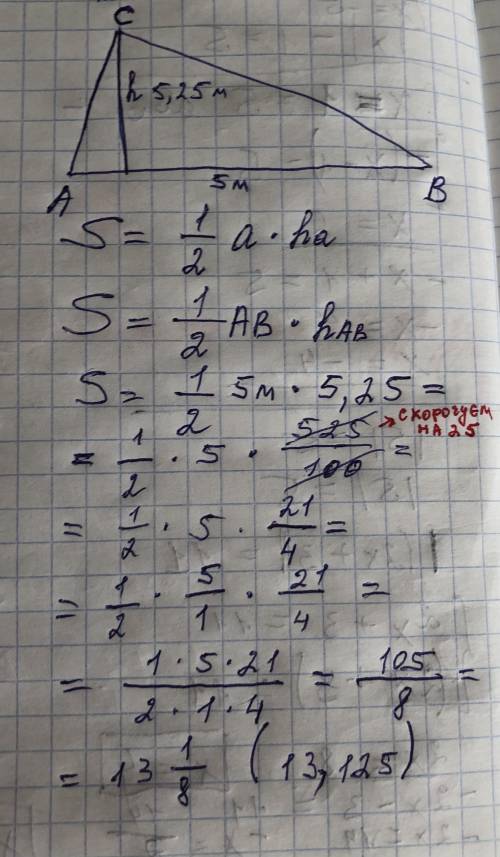 C
h 5,25м
5м
A
B
S = 1/2 a · ha
S = 1/2 AB · hAB
S = 1/2 5м · 5,25 =
= 1/2 · 5 · 525/100 = → скорочуем
на 25
= 1/2 · 5 · 21/4 =
= 1/2 · 5/1 · 21/4 =
= 1 · 5 · 21/2 · 1 · 4 = 105/8 =
= 13 1/8 (13,125)